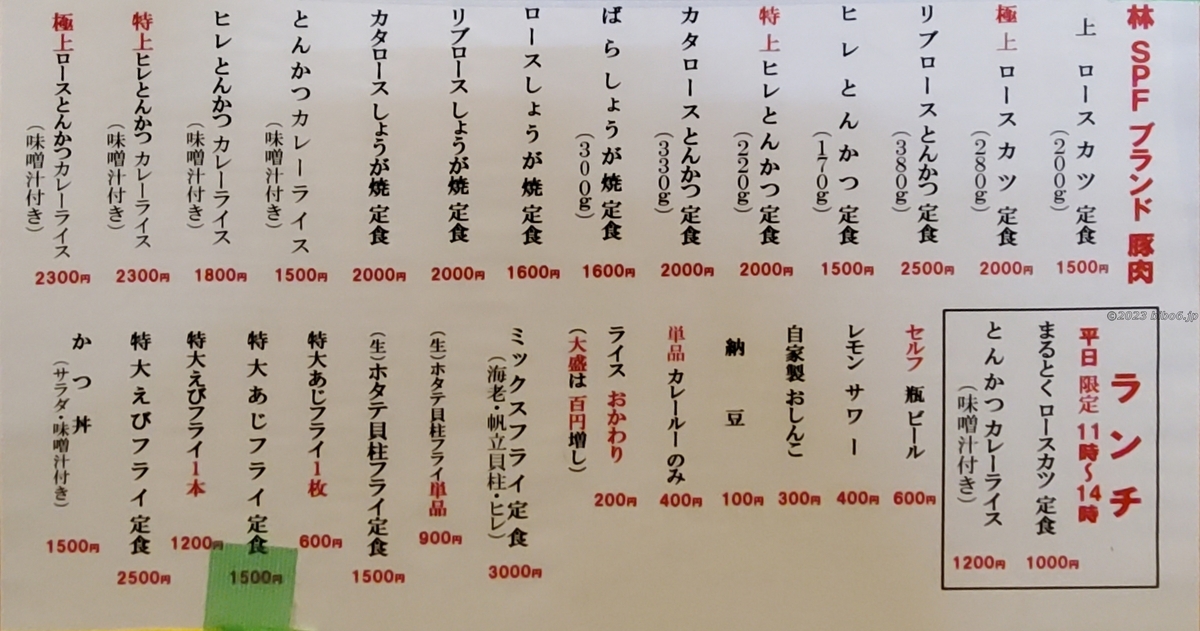 林 SPF ブランド 豚肉
上 ロースカツ 定食
(200g)
1500円
極上 ロースカツ 定食
(280g)
2000円
リブロースとんかつ 定食
(380g)
2500円
ヒレとんかつ 定食
(170g)
1500円
特上ヒレとんかつ 定食
(220g)
2000円
カタロースとんかつ 定食
(330g)
2000円
ばらしょうが焼 定食
(300g)
1600円
ロースしょうが焼 定食
1600円
リブロースしょうが焼 定食
2000円
カタロースしょうが焼 定食
2000円
とんかつカレーライス
(味噌汁付き)
1500円
ヒレとんかつ カレーライス
(味噌汁付き)
1800円
特上ヒレとんかつ カレーライス
(味噌汁付き)
2300円
極上ロースとんかつカレーライス
(味噌汁付き)
2300円
ランチ
平日 限定 11時〜14時
まるとくロースカツ 定食
1000円
とんかつカレーライス
(味噌汁付き)
1200円
セルフ 瓶ビール
600円
レモン サワー
400円
自家製 おしんこ
300円
納豆
100円
単品 カレールーのみ
400円
ライス おかわり
(大盛は百円増し)
200円
ミックスフライ定食
(海老・帆立貝柱・ヒレ)
3000円
(生)ホタテ貝柱フライ単品
900円
(生)ホタテ貝柱フライ定食
1500円
特大あじフライ1枚
600円
特大あじフライ 定食
1500円
特大えびフライ1本
1200円
特大えびフライ 定食
2500円
かつ丼
(サラダ・味噌汁付き)
1500円
©2023 bibo6.jp